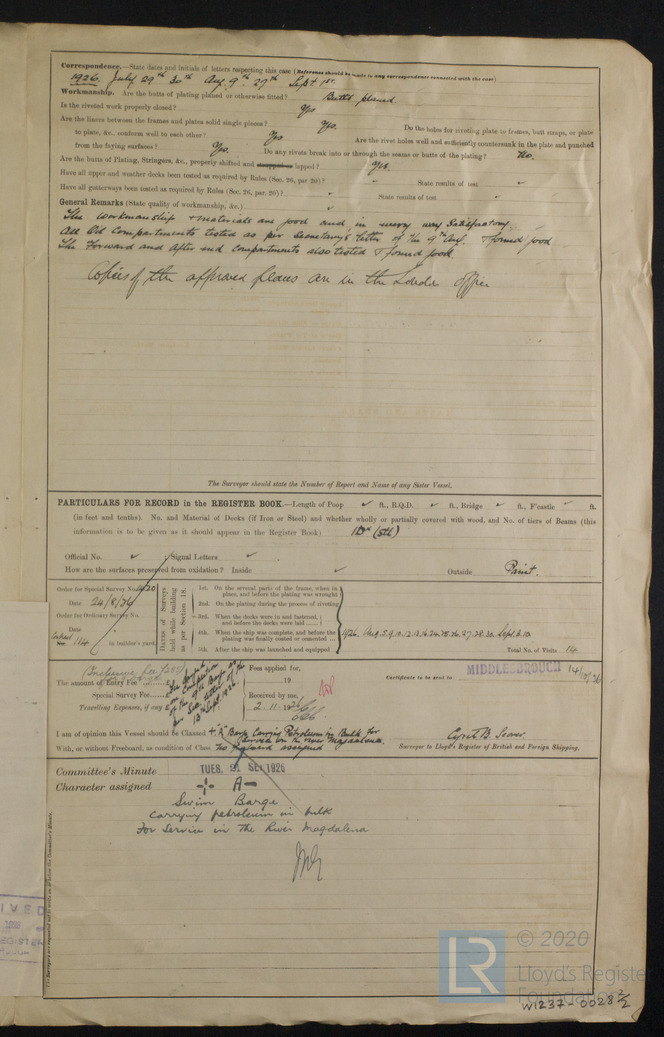 Correspondence.—State dates and initials of letters respecting this case (Reference should be made to any correspondence connected with the case)
1926. July 29th 30th Aug. 9th 27th Sept 1st.
Workmanship. Are the butts of plating planed or otherwise fitted? Butts planed.
Is the riveted work properly closed? Yes
Are the liners between the frames and plates solid single pieces? Yes. Do the holes for riveting plate to frames, butt straps, or plate
to plate, &c., conform well to each other? Yes Are the rivet holes well and sufficiently countersunk in the plate and punched
from the faying surfaces? Yes. Do any rivets break into or through the seams or butts of the plating? No.
Are the butts of Plating, Stringers, &c., properly shifted and lapped? Yes.
Have all upper and weather decks been tested as required by Rules (Sec. 26, par 20)? State results of test ✓
Have all gutterways been tested as required by Rules (Sec. 26, par. 20)? ✓ State results of test ✓
General Remarks (State quality of workmanship, &c.) ✓
The Workmanship & materials are good and in every way satisfactory.
All Oil Compartments tested as per Secretary's letter of the 9th Aug. & found good
The Forward and After end compartments also tested & found good
Copies of the approved plans are in the London office
The Surveyor should state the Number of Report and Name of any Sister Vessel.
PARTICULARS FOR RECORD in the REGISTER BOOK.—Length of Poop ✓ ft., R.Q.D. ✓ ft., Bridge ✓ ft., F'castle ✓ ft.
(in feet and tenths). No. and Material of Decks (if Iron or Steel) and whether wholly or partially covered with wood, and No. of tiers of Beams (this
information is to be given as it should appear in the Register Book) 1Dk (Stl)
Official No. ✓ Signal Letters ✓
How are the surfaces preserved from oxidation? Inside ✓ Outside Paint.
Order for Special Survey No. 1420
Date 24/8/26
Order for Ordinary Survey No.
Date
No. 114 in builder's yard.
DATES of Surveys held while building as per Section 18.
1st. On the several parts of the frame, when in place, and before the plating was wrought
2nd. On the plating during the process of riveting
3rd. When the decks were in and fastened, and before the decks were laid
4th. When the ship was complete, and before the plating was finally coated or cemented
5th. After the ship was launched and equipped
1926. Aug. 5.9.10.12.13.16.24.25.26.27.28.30. Sept. 8.10.
Total No. of Visits 14
The amount of Entry Fee
Special Survey Fee
Travelling Expenses, if any £
Fees applied for,
19
Received by me,
2. 11. 1926
Certificate to be sent to MIDDLESBROUGH
I am of opinion this Vessel should be Classed + "A" Barge Carrying Petroleum in Bulk for
Service on the river Magdalena.
With, or without Freeboard, as condition of Class No Freeboard assigned
Surveyor to Lloyd's Register of British and Foreign Shipping.
Committee's Minute TUES. 21 SEP 1926
Character assigned + A—
Swim Barge
Carrying petroleum in bulk
For Service in the River Magdalena
LR
© 2020
Lloyd's Register
Foundation
W1237-0028 2/2